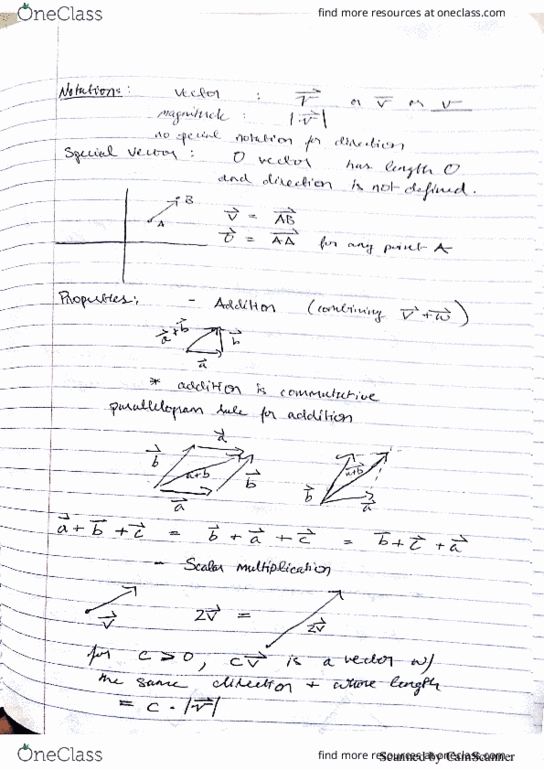 OneClass
find more resources at oneclass.com
Notations: vector : v⃗ or v̅ or v̲
magnitude : |v⃗|
no special notation for direction
Special vector : 0 vector has length 0
and direction is not defined.
B
A
v⃗ = AB⃗
0⃗ = AA⃗ for any point A
Properties: - Addition (combining v⃗ + w⃗)
a⃗+b⃗ b⃗
a⃗
* addition is commutative
parallelogram rule for addition
a⃗
b⃗ a+b b⃗
a⃗
a+b
b⃗ a⃗
a⃗ + b⃗ + c⃗ = b⃗ + a⃗ + c⃗ = b⃗ + c⃗ + a⃗
- Scalar multiplication
v⃗ 2v⃗ = 2v⃗
for c > 0, cv⃗ is a vector w/
the same direction + whose length
= c · |v⃗|
OneClass
find more resources at oneclass.com
Scanned by CamScanner